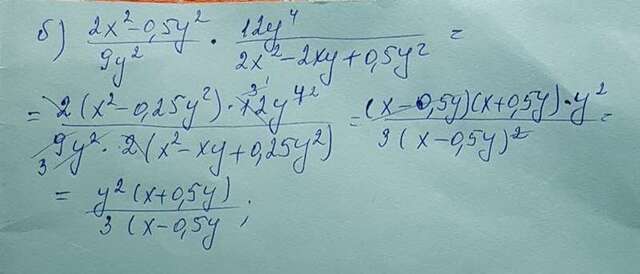 б) (2x²-0,5y²)/(9y²) · (12y⁴)/(2x²-2xy+0,5y²) =
= (2(x²-0,25y²)·12y⁴ ²)/(9y²·2(x²-xy+0,25y²)) 3 = ((x-0,5y)(x+0,5y)·y²)/(3(x-0,5y)²) =
= (y²(x+0,5y))/(3(x-0,5y ;